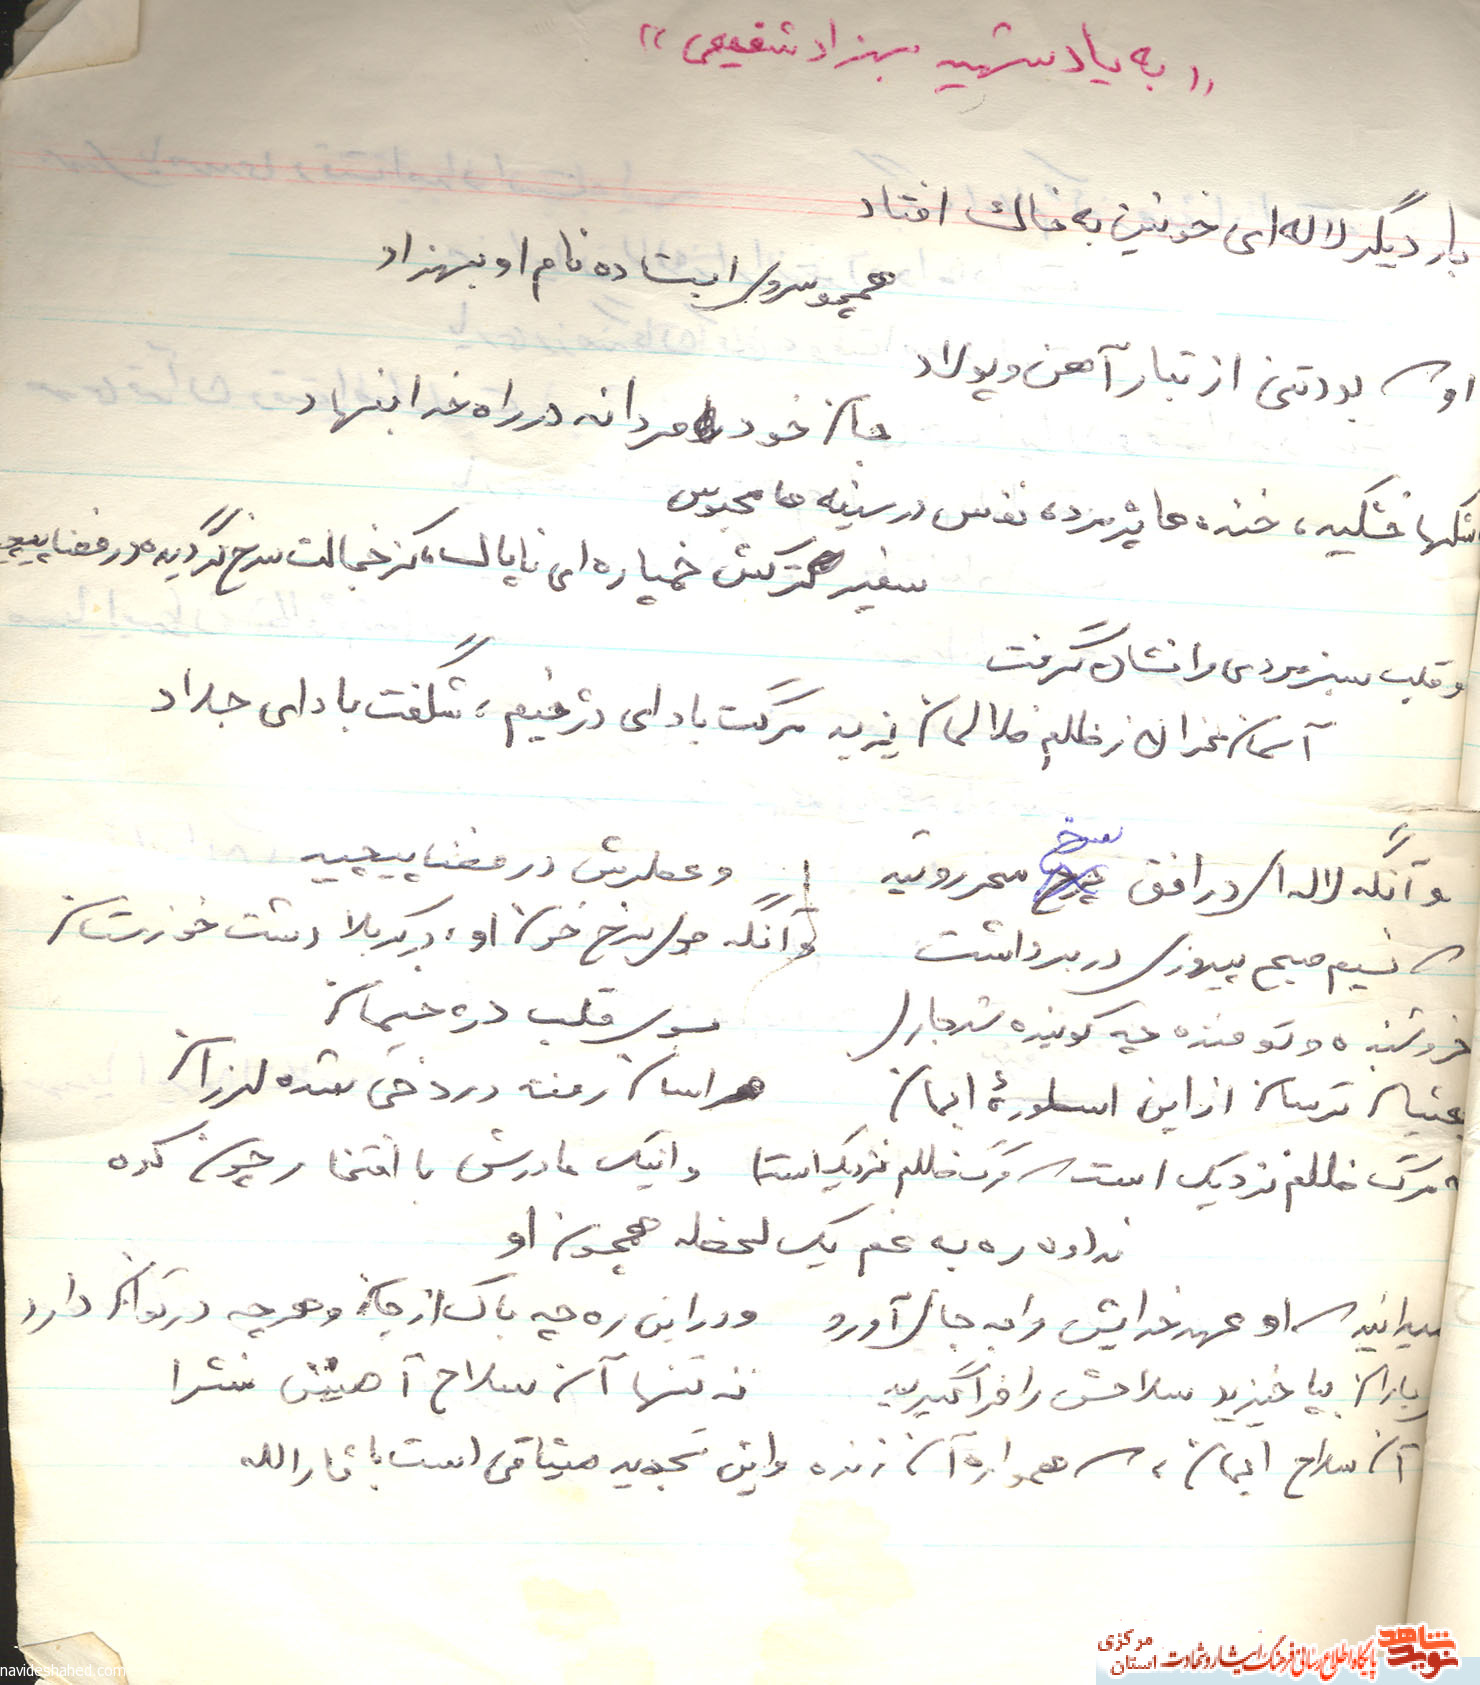 «به یاد شهید بهزاد شفیعی»
بار دیگر لاله ای خونین به خاک افتاد
همچو سروی ایستاده نام او بهزاد
او که بود تنی از تبار آهن و پولاد
جان خود مردانه در راه خدا بنهاد
اشکها خشکید، خنده ها پژمرده، نفس در سینه ها محبوس
سفیر ترکش خمپاره ای ناپاک، کز خجالت سرخ گردیده در فضا پیچید
و قلب سبز مردی را نشان گرفت
آسمان غران ز ظلم ظالمان غرید مرگت بادای دژخیم، شگفت بادای جلاد
و آنگه لاله ای در افق سرخ سحر روئید و عطرش در فضا پیچید
که نسیم صبح پیروزی در بر داشت و آنگه جوی سرخ خون او، در کربلا دشت خوزستان
خروشنده و تومنده چه کوبنده شد جاری بسوی قلب دژخیمان
بعثیان ترسان از این اسطورهٔ ایمان هراسان رفته در دخی شده لرزان
که مرگ ظلم نزدیک است که مرگ ظلم نزدیک است و اینک مادرش با افتخار چون کوه
نداده ره به غم یک لحظه همچون او
میدانید که او عهد خدایش را به جای آورد و در این ره چه باک از جان و هر چه در توان دارد
یاران بپا خیزید سلاحش را فرا گیرید نه تنها آن سلاح آهنینش را
آن سلاح ایمان، که همواره آن زنده و این تجدید میثاقی است با ثارالله
نوید شاهد
پایگاه اطلاع رسانی فرهنگ ایثار و شهادت استان مرکزی
navideshahed.com